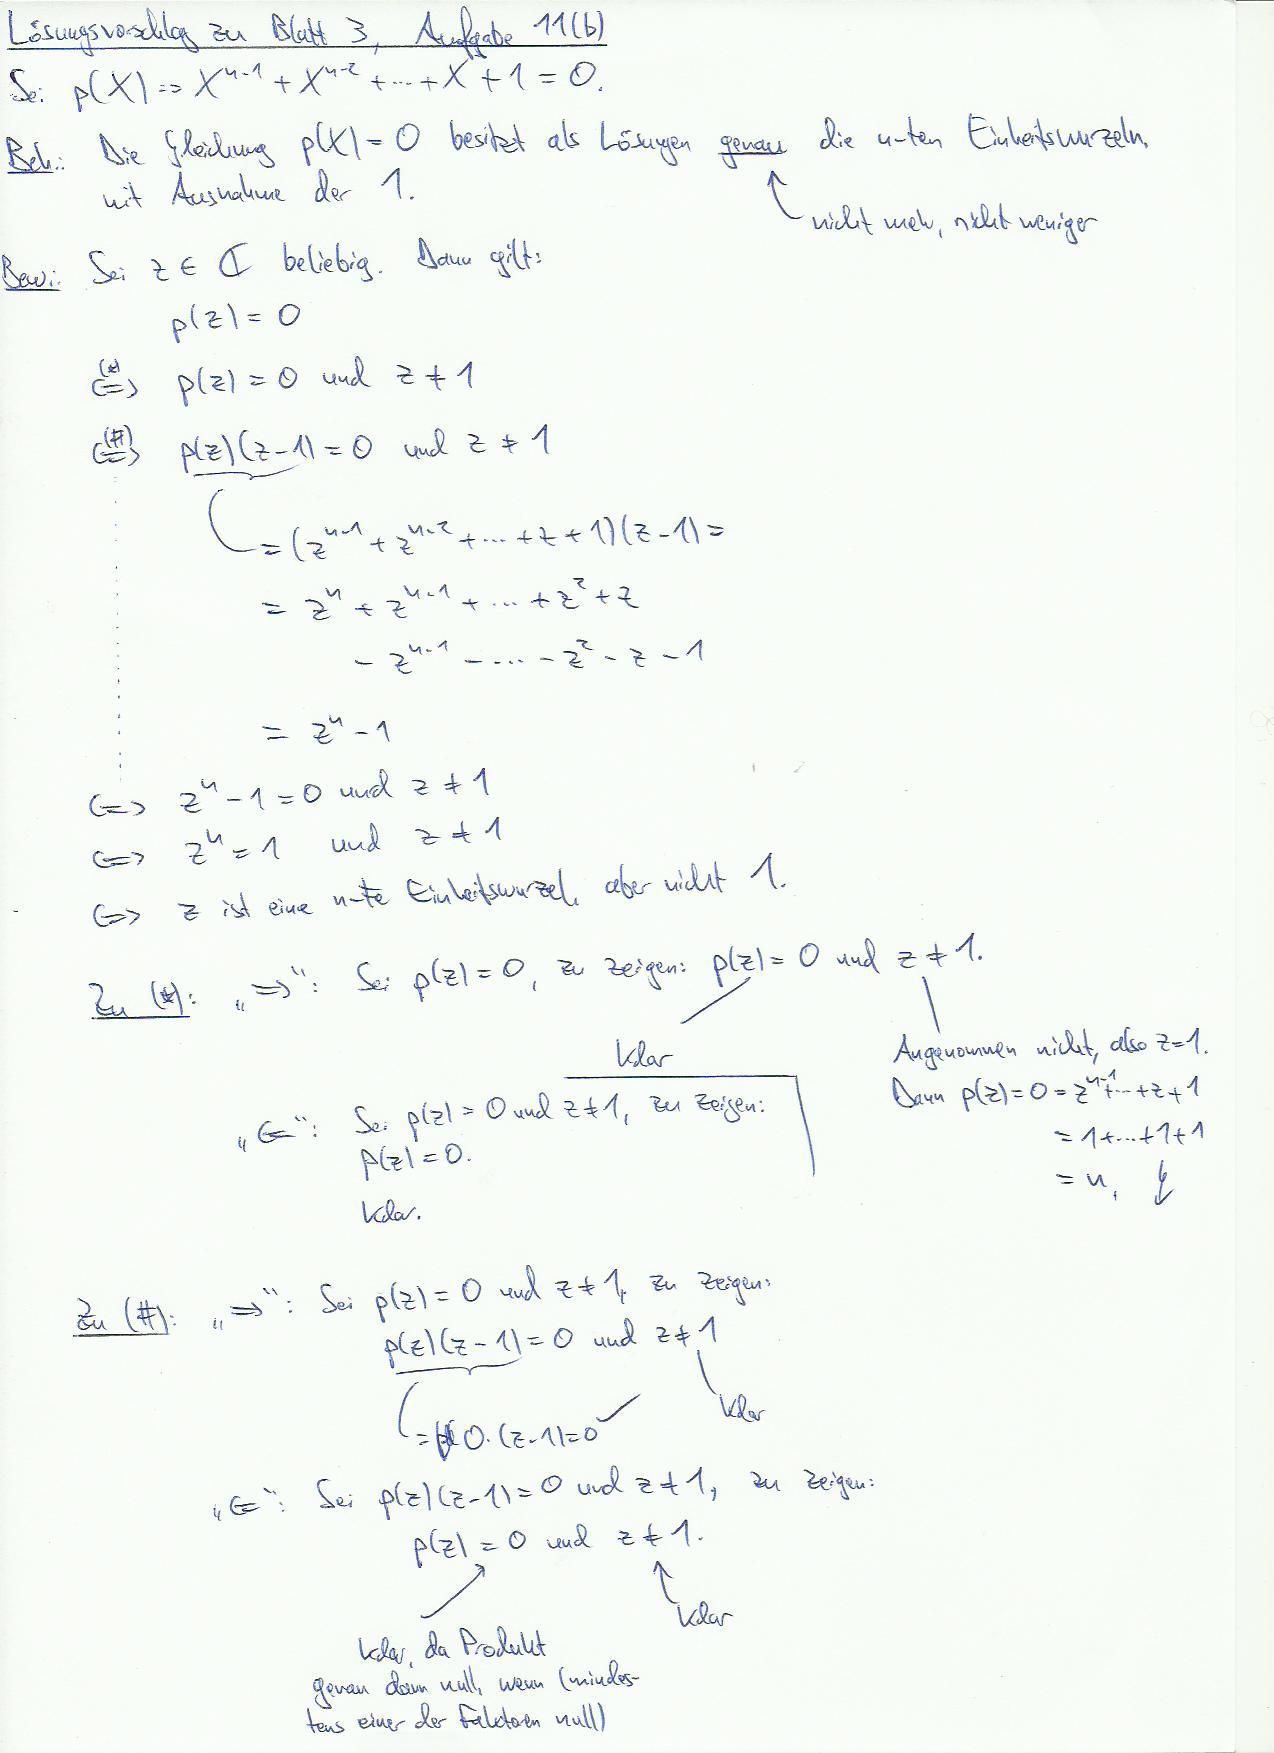 Lösungsvorschlag zu Blatt 3, Aufgabe 11(b)
Sei p(X) := X^{n-1} + X^{n-2} + ... + X + 1 = 0.
Beh.: Die Gleichung p(X) = 0 besitzt als Lösungen genau die n-ten Einheitswurzeln,
mit Ausnahme der 1.
nicht mehr, nicht weniger
Bew.: Sei z ∈ ℂ beliebig. Dann gilt:
p(z) = 0
(*) ⇔ p(z) = 0 und z ≠ 1
(#) ⇔ p(z)(z-1) = 0 und z ≠ 1
= (z^{n-1} + z^{n-2} + ... + z + 1)(z-1) =
= z^n + z^{n-1} + ... + z^2 + z
- z^{n-1} - ... - z^2 - z - 1
= z^n - 1
⇔ z^n - 1 = 0 und z ≠ 1
⇔ z^n = 1 und z ≠ 1
⇔ z ist eine n-te Einheitswurzel, aber nicht 1.
Zu (*): „⇒“: Sei p(z) = 0, zu zeigen: p(z) = 0 und z ≠ 1.
klar
Angenommen nicht, also z=1.
Dann p(z) = 0 = z^{n-1} + ... + z + 1
= 1 + ... + 1 + 1
= n, ↯
„⇐“: Sei p(z) = 0 und z ≠ 1, zu zeigen:
p(z) = 0.
Klar.
Zu (#): „⇒“: Sei p(z) = 0 und z ≠ 1, zu zeigen:
p(z)(z-1) = 0 und z ≠ 1
klar
= 0·(z-1) = 0 ✓
„⇐“: Sei p(z)(z-1) = 0 und z ≠ 1, zu zeigen:
p(z) = 0 und z ≠ 1.
klar
klar, da Produkt
genau dann null, wenn (mindes-
tens einer der Faktoren null)